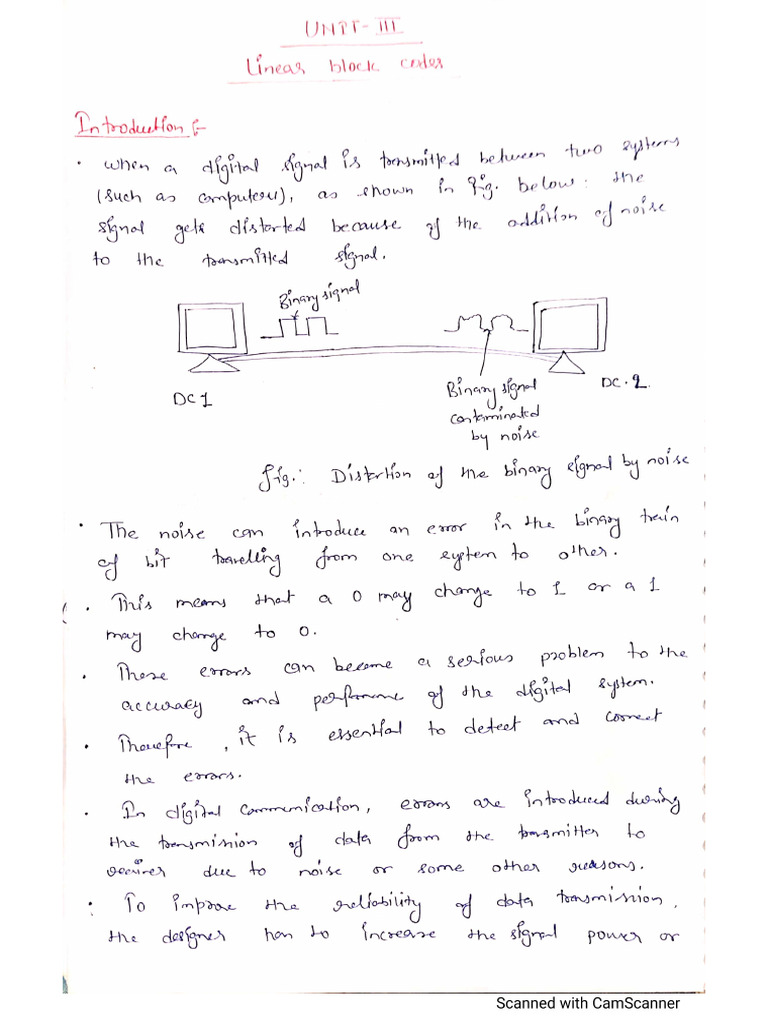 UNIT-III
Linear block codes
Introduction :-
• When a digital signal is transmitted between two systems
(such as computers), as shown in fig. below: the
signal gets distorted because of the addition of noise
to the transmitted signal.
Binary signal
DC 1
Binary signal
contaminated
by noise
DC-2.
fig.: Distortion of the binary signal by noise
• The noise can introduce an error in the binary train
of bit travelling from one system to other.
• This means that a 0 may change to 1 or a 1
may change to 0.
• These errors can become a serious problem to the
accuracy and performance of the digital system.
• Therefore, it is essential to detect and correct
the errors.
• In digital communication, errors are introduced during
the transmission of data from the transmitter to
reciver due to noise or some other reasons.
• To improve the reliability of data transmission,
the designer has to increase the signal power or
Scanned with CamScanner